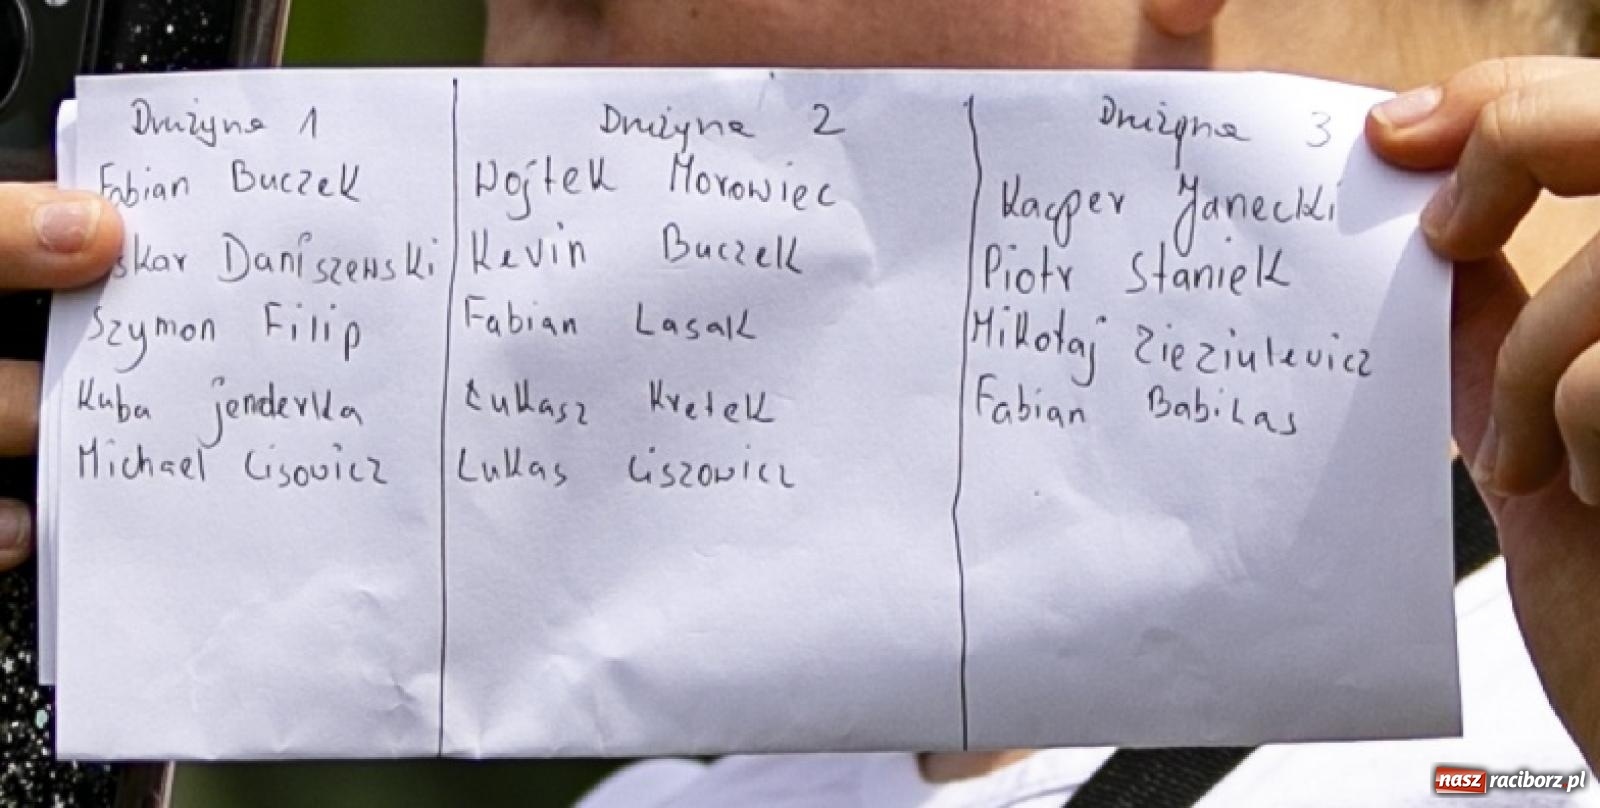 Drużyna 1
Fabian Buczek
skar Daniszewski
Szymon Filip
Kuba jenderka
Michael Cisowicz
Drużyna 2
Wojtek Morowiec
Kevin Buczek
Fabian Lasak
Łukasz Kretek
Lukas Ciszowicz
Drużyna 3
Kacper Janecki
Piotr Staniek
Mikołaj Zięziulewicz
Fabian Babilas
nasz raciborz.pl